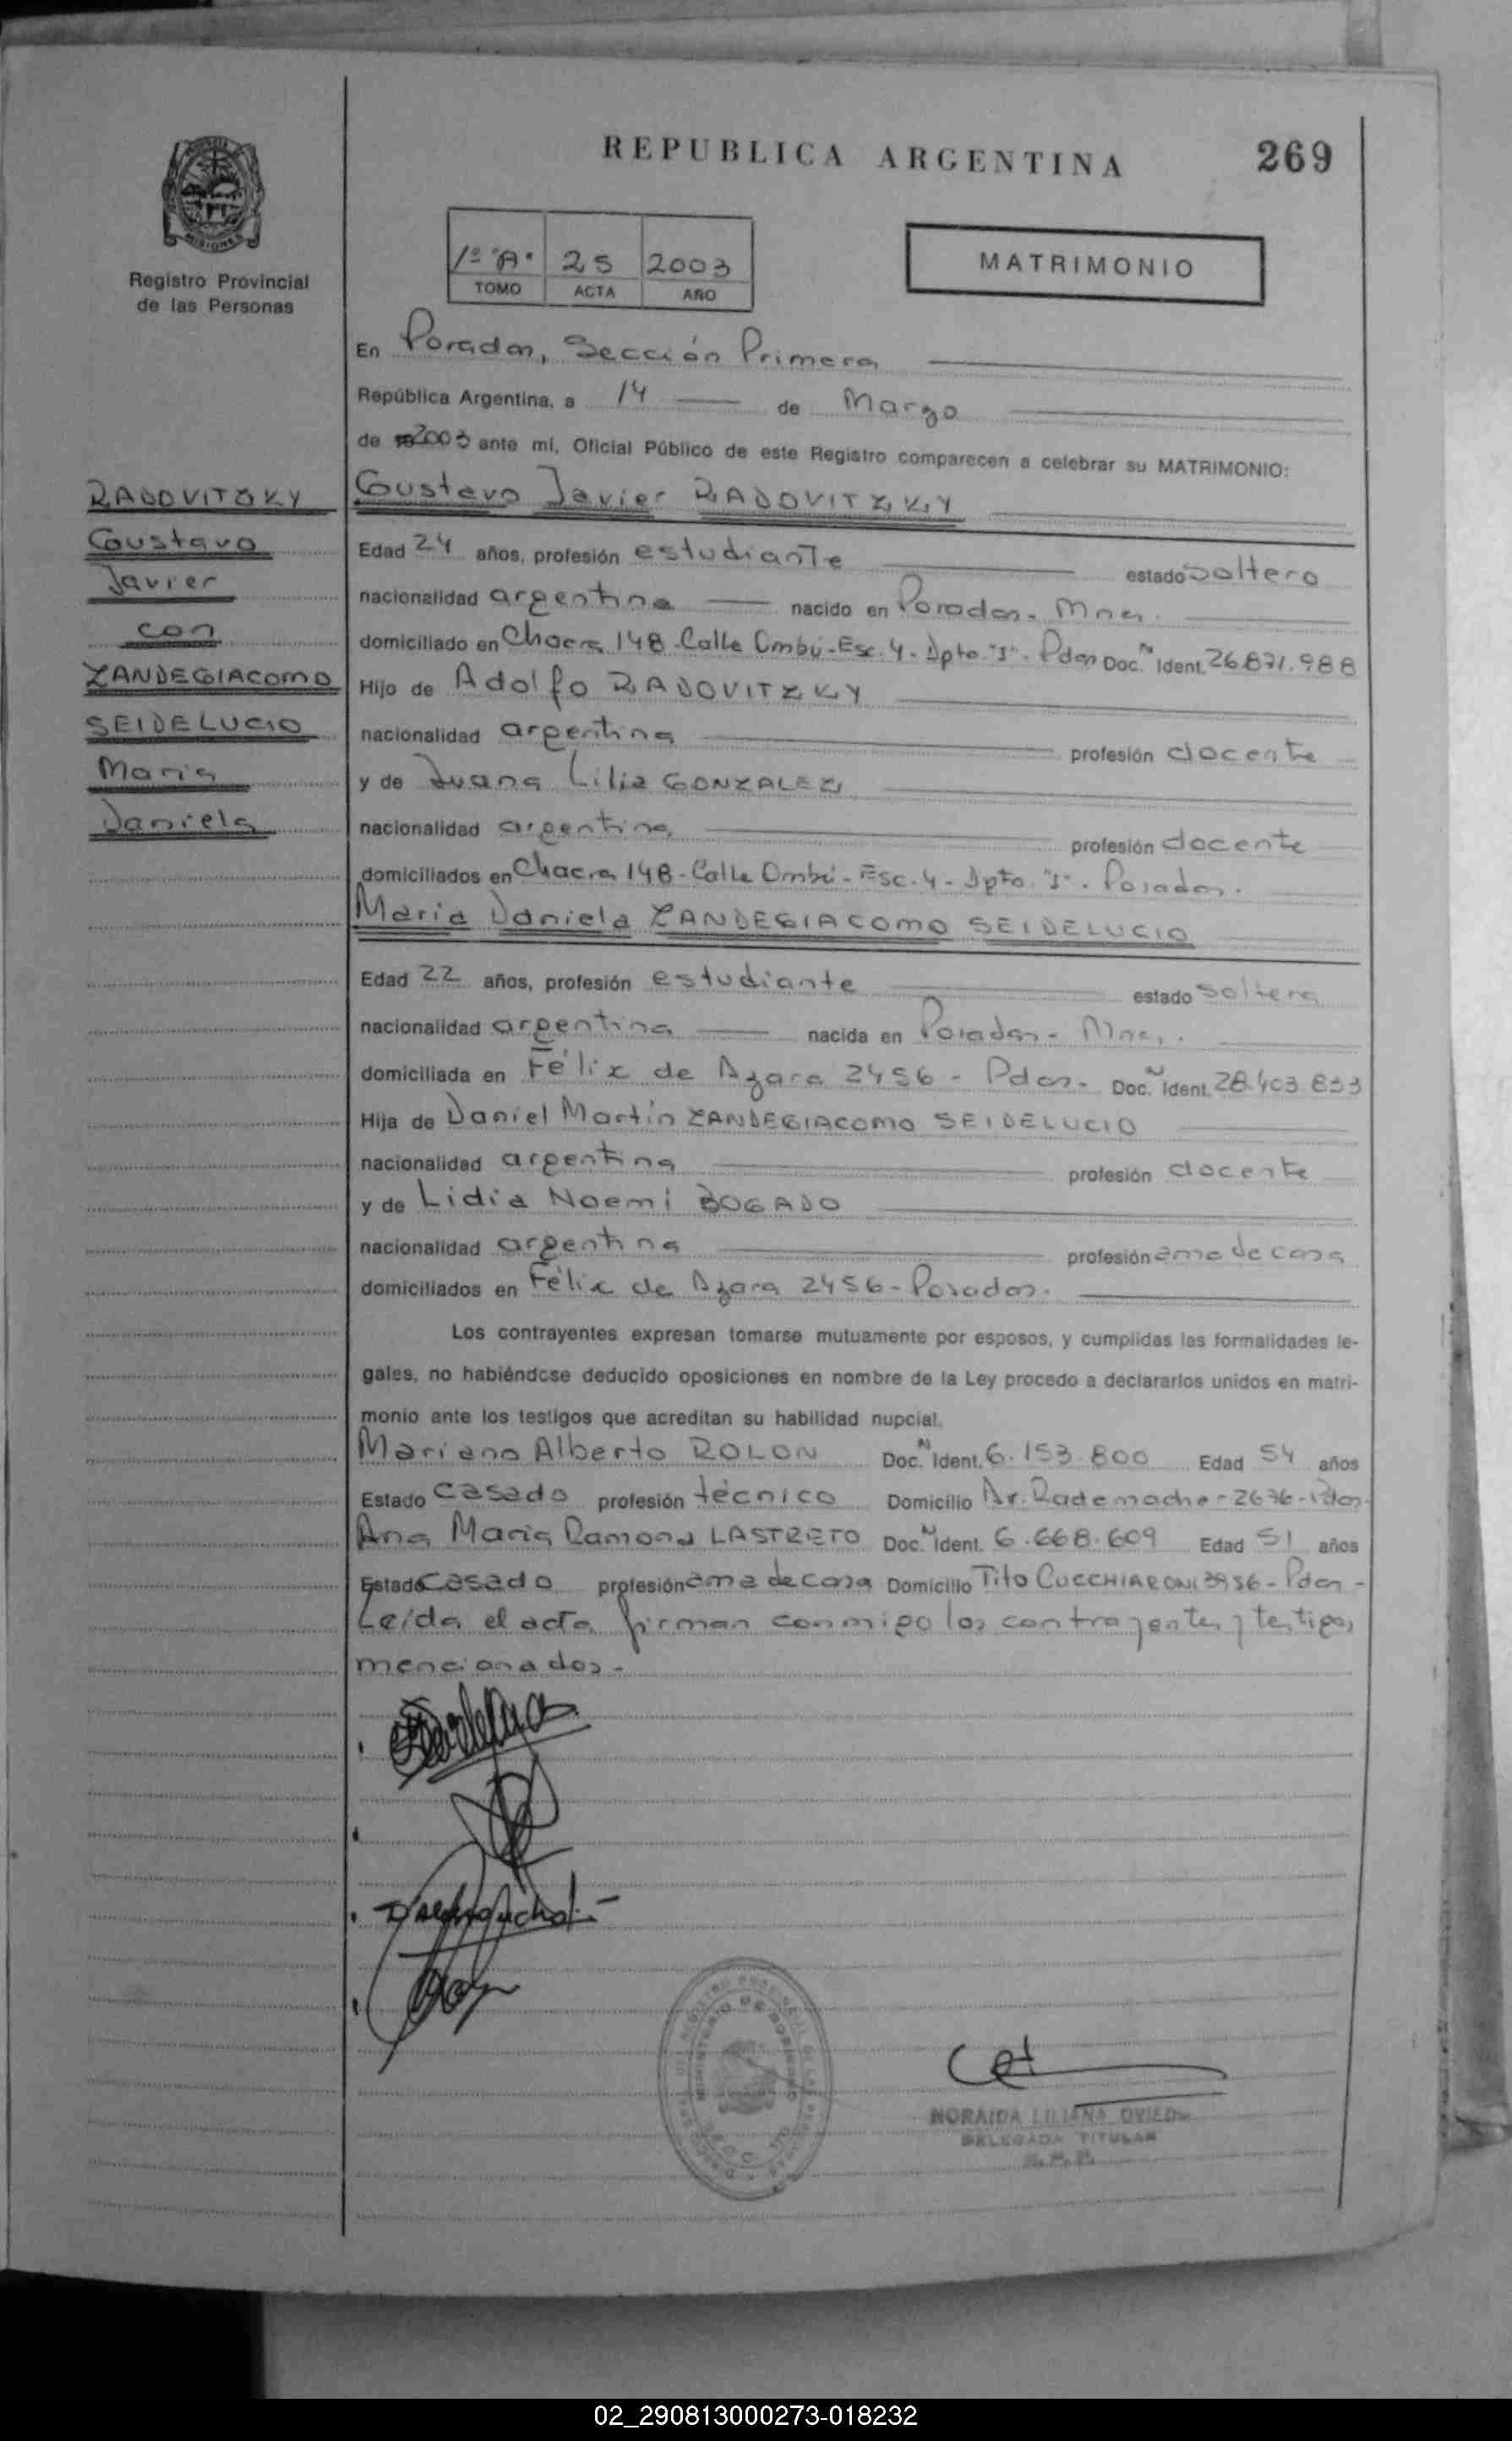 REPUBLICA ARGENTINA
269
MISIONES
Registro Provincial
de las Personas
1º "A" 25 2003
TOMO ACTA AÑO
MATRIMONIO
En Posadas, Sección Primera
República Argentina, a 14 de Marzo
de 2003 ante mí, Oficial Público de este Registro comparecen a celebrar su MATRIMONIO:
RADOVITZKY
Gustavo
Javier
con
ZANDEGIACOMO
SEIDELUCIO
María
Daniela
Gustavo Javier RADOVITZKY
Edad 24 años, profesión estudiante estado soltero
nacionalidad argentina nacido en Posadas - Mnes.
domiciliado en Chacra 148 - Calle Ombú - Esc. 4 - Dpto. "I" - Pdas Doc. Nº Ident. 26.871.988
Hijo de Adolfo RADOVITZKY
nacionalidad argentina profesión docente
y de Juana Lilia GONZALEZ
nacionalidad argentina profesión docente
domiciliados en Chacra 148 - Calle Ombú - Esc. 4 - Dpto. "I" - Posadas.
María Daniela ZANDEGIACOMO SEIDELUCIO
Edad 22 años, profesión estudiante estado soltera
nacionalidad argentina nacida en Posadas - Mnes.
domiciliada en Félix de Azara 2456 - Pdas. Doc. Nº Ident. 28.403.833
Hija de Daniel Martín ZANDEGIACOMO SEIDELUCIO
nacionalidad argentina profesión docente
y de Lidia Noemí BOGADO
nacionalidad argentina profesión ama de casa
domiciliados en Félix de Azara 2456 - Posadas.
Los contrayentes expresan tomarse mutuamente por esposos, y cumplidas las formalidades le-
gales, no habiéndose deducido oposiciones en nombre de la Ley procedo a declararlos unidos en matri-
monio ante los testigos que acreditan su habilidad nupcial.
Mariano Alberto ROLON Doc. Nº Ident. 6.153.800 Edad 54 años
Estado casado profesión técnico Domicilio Av. Rademacher 2676 - Pdas.
Ana María Ramona LASTRETO Doc. Nº Ident. 6.668.609 Edad 51 años
Estado casado profesión ama de casa Domicilio Tito CUCCHIARONI 3956 - Pdas -
Leída el acta firman conmigo los contrayentes y testigos
mencionados.-
NORAIDA LILIANA OVIEDO
DELEGADA TITULAR
R.P.P.
02_290813000273-018232